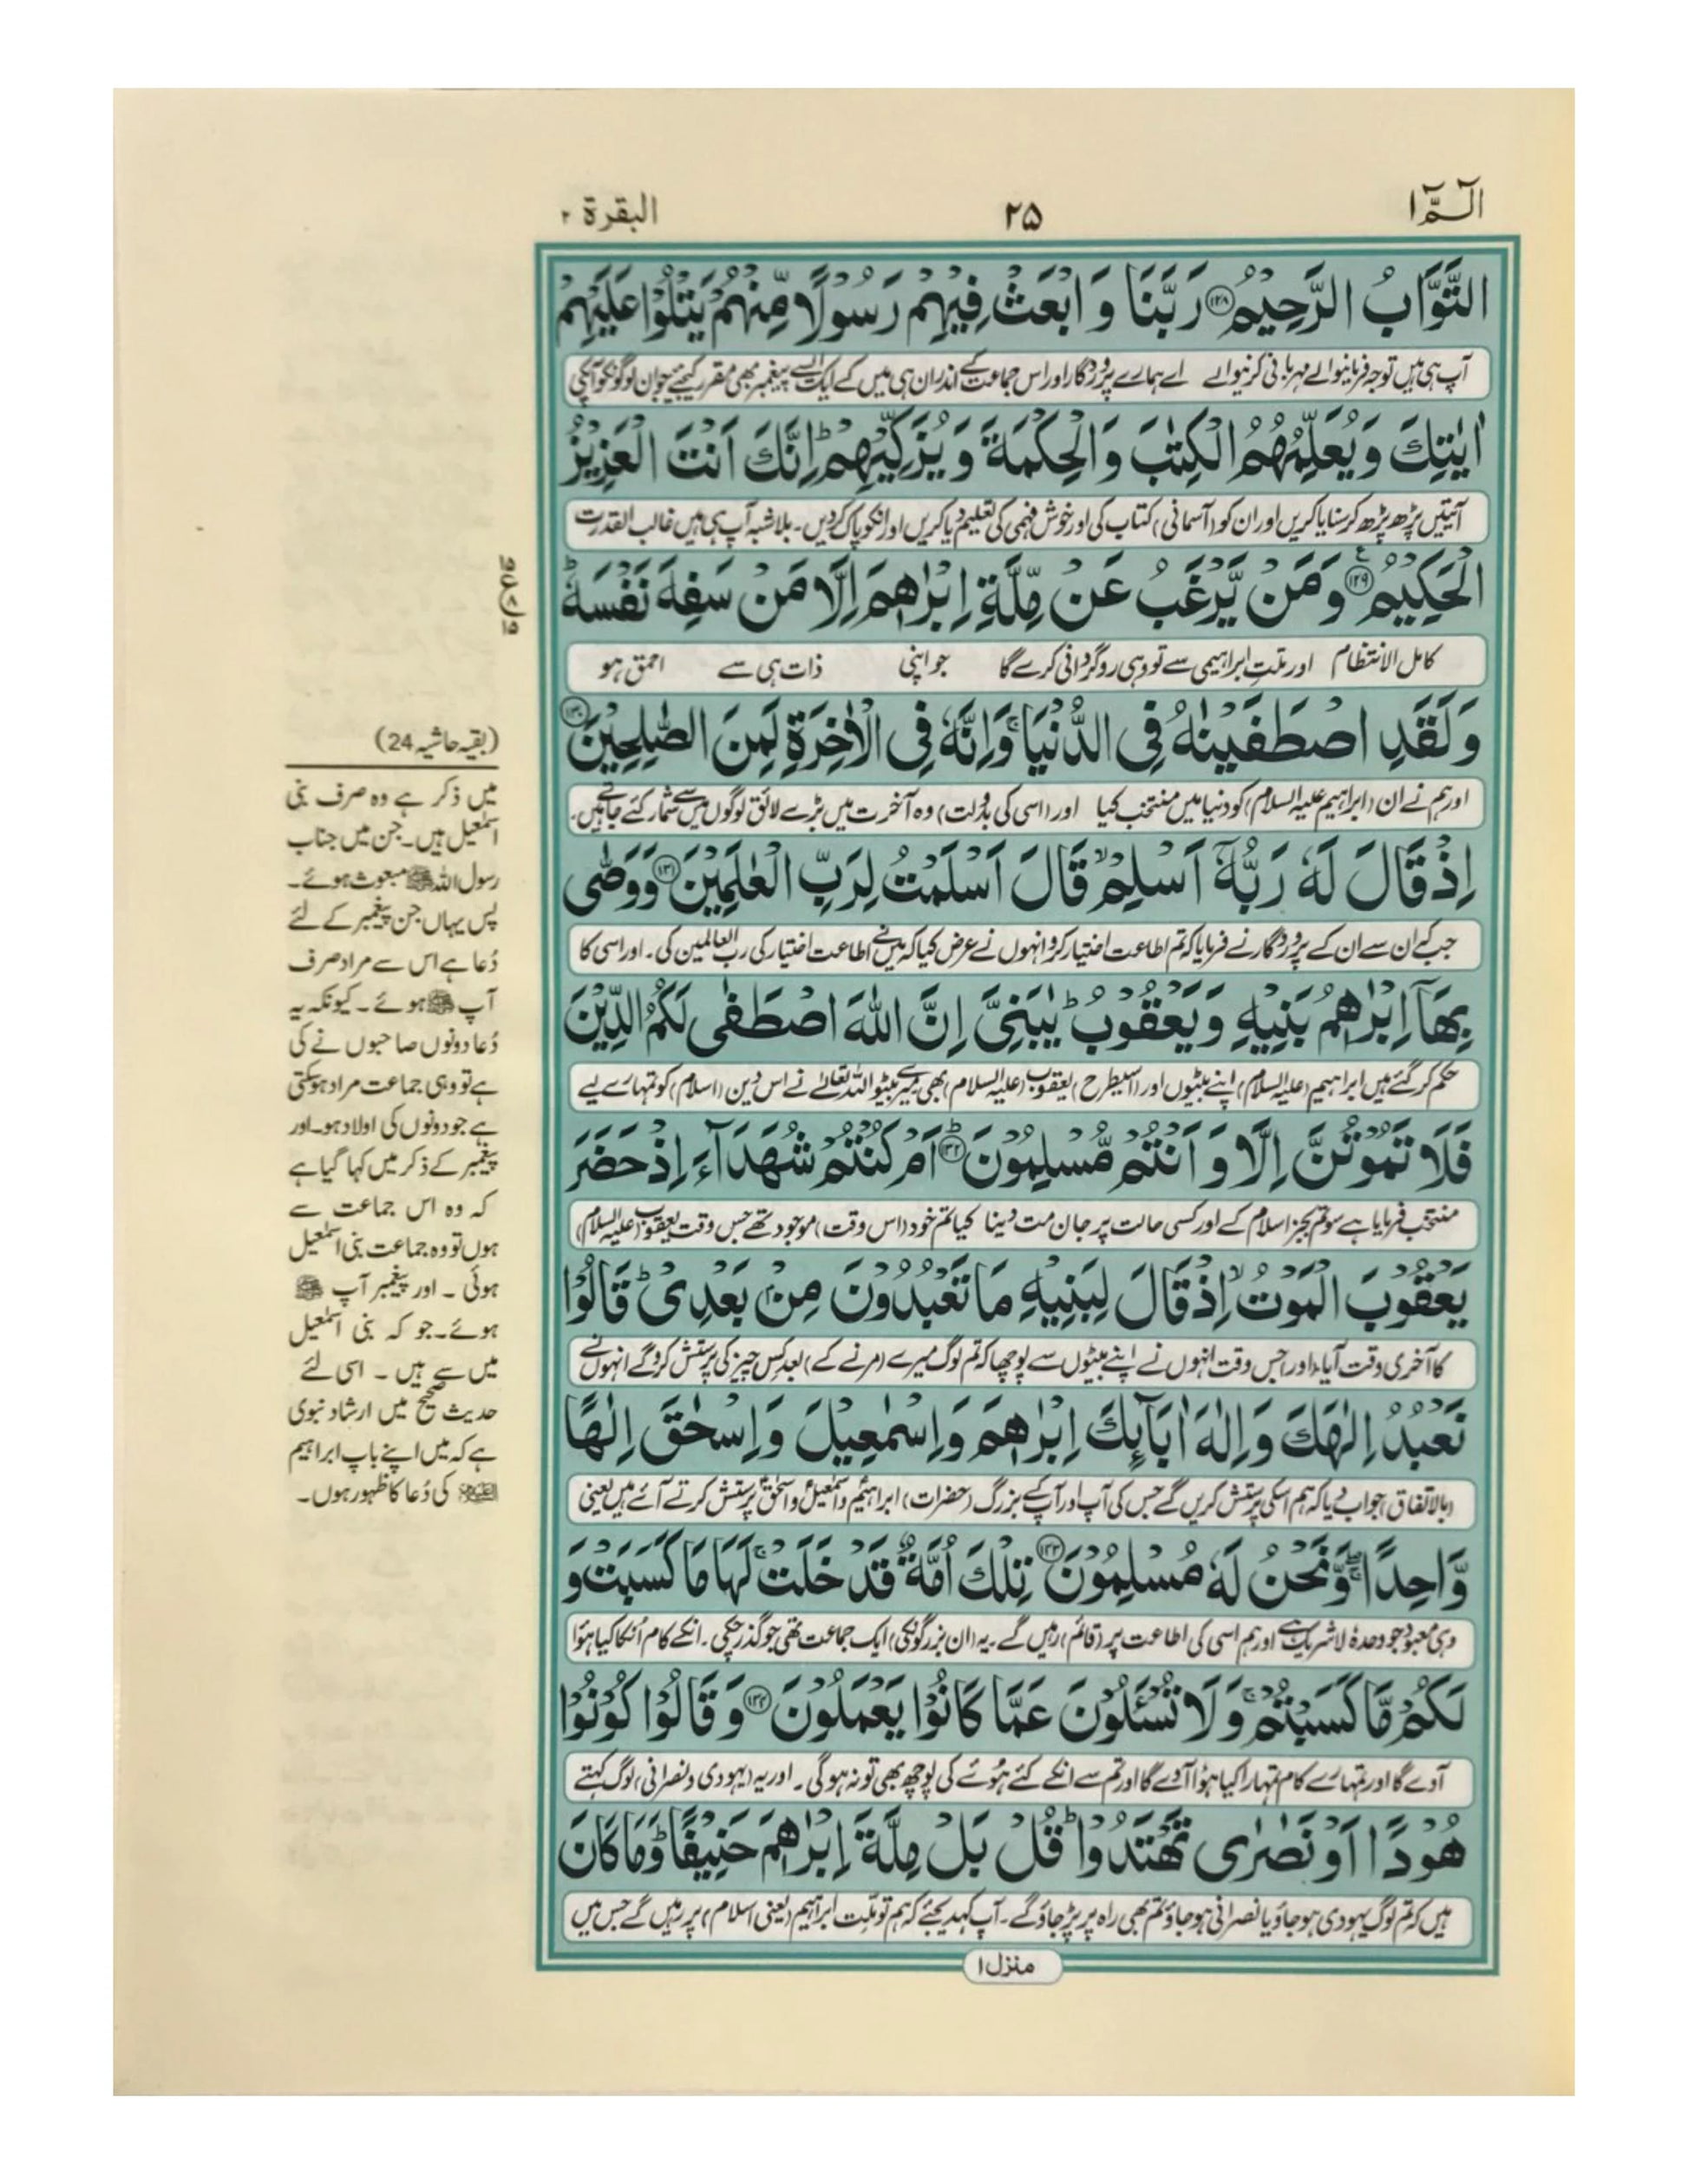 الٓـمّٓ ۱
۲۵
البقرة ۲
التَّوَّابُ الرَّحِيْمُ ﴿۱۲۸﴾ رَبَّنَا وَ ابْعَثْ فِيْهِمْ رَسُوْلًا مِّنْهُمْ يَتْلُوْا عَلَيْهِمْ
آپ ہی ہیں توجہ فرمانیوالے مہربانی کرنیوالے اے ہمارے پروردگار اور اس جماعت کے اندر ان ہی میں کے ایک ایسے پیغمبر بھی مقرر کیجئے جو ان لوگونکو آپکی
اٰيٰتِكَ وَ يُعَلِّمُهُمُ الْكِتٰبَ وَ الْحِكْمَةَ وَ يُزَكِّيْهِمْ ؕ اِنَّكَ اَنْتَ الْعَزِيْزُ
آیتیں پڑھ پڑھ کر سنایا کریں اور ان کو (آسمانی) کتاب کی اور خوش فہمی کی تعلیم دیا کریں اور انکو پاک کر دیں۔ بلاشبہ آپ ہی ہیں غالب القدرت
الْحَكِيْمُ ﴿۱۲۹﴾ ع وَ مَنْ يَّرْغَبُ عَنْ مِّلَّةِ اِبْرٰهٖمَ اِلَّا مَنْ سَفِهَ نَفْسَهٗ ؕ
کامل الانتظام اور ملت ابراہیمی سے تو وہی روگردانی کرے گا جو اپنی ذات ہی سے احمق ہو
وَ لَقَدِ اصْطَفَيْنٰهُ فِي الدُّنْيَا ۚ وَ اِنَّهٗ فِي الْاٰخِرَةِ لَمِنَ الصّٰلِحِيْنَ ﴿۱۳۰﴾
اور ہم نے ان (ابراہیم علیہ السلام) کو دنیا میں منتخب کیا اور (اسی کی بدولت) وہ آخرت میں بڑے لائق لوگوں میں سے شمار کئے جاتے ہیں۔
اِذْ قَالَ لَهٗ رَبُّهٗۤ اَسْلِمْ ۙ قَالَ اَسْلَمْتُ لِرَبِّ الْعٰلَمِيْنَ ﴿۱۳۱﴾ وَ وَصّٰى
جب کہ ان سے ان کے پروردگار نے فرمایا کہ تم اطاعت اختیار کرو انہوں نے عرض کیا کہ میں نے اطاعت اختیار کی رب العالمین کی۔ اور اسی کا
بِهَاۤ اِبْرٰهٖمُ بَنِيْهِ وَ يَعْقُوْبُ ؕ يٰبَنِيَّ اِنَّ اللّٰهَ اصْطَفٰى لَكُمُ الدِّيْنَ
حکم کر گئے ہیں ابراہیم (علیہ السلام) اپنے بیٹوں اور (اسیطرح) یعقوب (علیہ السلام) بھی میرے بیٹو اللہ تعالیٰ نے اس دین (اسلام) کو تمہارے لیے
فَلَا تَمُوْتُنَّ اِلَّا وَ اَنْتُمْ مُّسْلِمُوْنَ ﴿۱۳۲﴾ ؕ اَمْ كُنْتُمْ شُهَدَآءَ اِذْ حَضَرَ
منتخب فرمایا ہے سو تم بجز اسلام کے اور کسی حالت پر جان مت دینا کیا تم خود (اس وقت) موجود تھے جس وقت یعقوب (علیہ السلام)
يَعْقُوْبَ الْمَوْتُ ۙ اِذْ قَالَ لِبَنِيْهِ مَا تَعْبُدُوْنَ مِنْۢ بَعْدِيْ ؕ قَالُوْا
کا آخری وقت آیا (اور) جس وقت انہوں نے اپنے بیٹوں سے پوچھا کہ تم لوگ میرے (مرنے کے) بعد کس چیز کی پرستش کرو گے انہوں نے
نَعْبُدُ اِلٰهَكَ وَ اِلٰهَ اٰبَآئِكَ اِبْرٰهٖمَ وَ اِسْمٰعِيْلَ وَ اِسْحٰقَ اِلٰهًا
(بالاتفاق) جواب دیا کہ ہم اسکی پرستش کریں گے جس کی آپ اور آپ کے بزرگ (حضرات) ابراہیمؑ و اسمٰعیلؑ و اسحٰقؑ پرستش کرتے آئے ہیں یعنی
وَّاحِدًا ۖۚ وَّ نَحْنُ لَهٗ مُسْلِمُوْنَ ﴿۱۳۳﴾ تِلْكَ اُمَّةٌ قَدْ خَلَتْ ۚ لَهَا مَا كَسَبَتْ وَ
وہی معبود جو وحدہٗ لاشریک ہے اور ہم اسی کی اطاعت پر (قائم) رہیں گے۔ یہ (ان بزرگونکی) ایک جماعت تھی جو گذر چکی۔ انکے کام اُنکا کیا ہوُا
لَكُمْ مَّا كَسَبْتُمْ ۚ وَ لَا تُسْـَٔلُوْنَ عَمَّا كَانُوْا يَعْمَلُوْنَ ﴿۱۳۴﴾ وَ قَالُوْا كُوْنُوْا
آوے گا اور تمہارے کام تمہارا کیا ہوُا آوے گا اور تم سے انکے کئے ہوُئے کی پوچھ بھی تو نہ ہوگی۔ اور یہ (یہودی و نصرانی) لوگ کہتے
هُوْدًا اَوْ نَصٰرٰى تَهْتَدُوْا ؕ قُلْ بَلْ مِلَّةَ اِبْرٰهٖمَ حَنِيْفًا ؕ وَ مَا كَانَ
ہیں کہ تم لوگ یہودی ہو جاؤ یا نصرانی ہو جاؤ تم بھی راہ پر پڑ جاؤ گے۔ آپ کہدیجئے کہ ہم تو ملّت ابراہیم (یعنی اسلام) پر رہیں گے جس میں
منزل ۱
(بقیہ حاشیہ 24)
میں ذکر ہے وہ صرف بنی
اسمٰعیل ہیں۔ جن میں جناب
رسول اللہ ﷺ مبعوث ہوئے۔
پس یہاں جن پیغمبر کے لئے
دُعا ہے اس سے مراد صرف
آپ ﷺ ہوئے۔ کیونکہ یہ
دُعا دونوں صاحبوں نے کی
ہے تو وہی جماعت مراد ہو سکتی
ہے جو دونوں کی اولاد ہو۔ اور
پیغمبر کے ذکر میں کہا گیا ہے
کہ وہ اس جماعت سے
ہوں تو وہ جماعت بنی اسمٰعیل
ہوئی ۔ اور پیغمبر آپ ﷺ
ہوئے۔ جو کہ بنی اسمٰعیل
میں سے ہیں ۔ اسی لئے
حدیث صحیح میں ارشاد نبوی
ہے کہ میں اپنے باپ ابراہیم
علیہ السلام کی دُعا کا ظہور ہوں۔